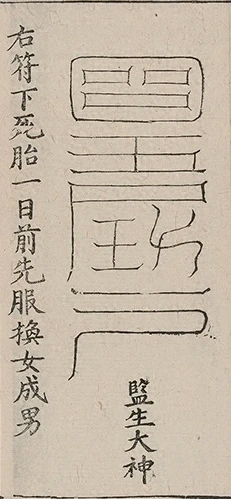 監生大神
右符下死胎一日前先服換女成男